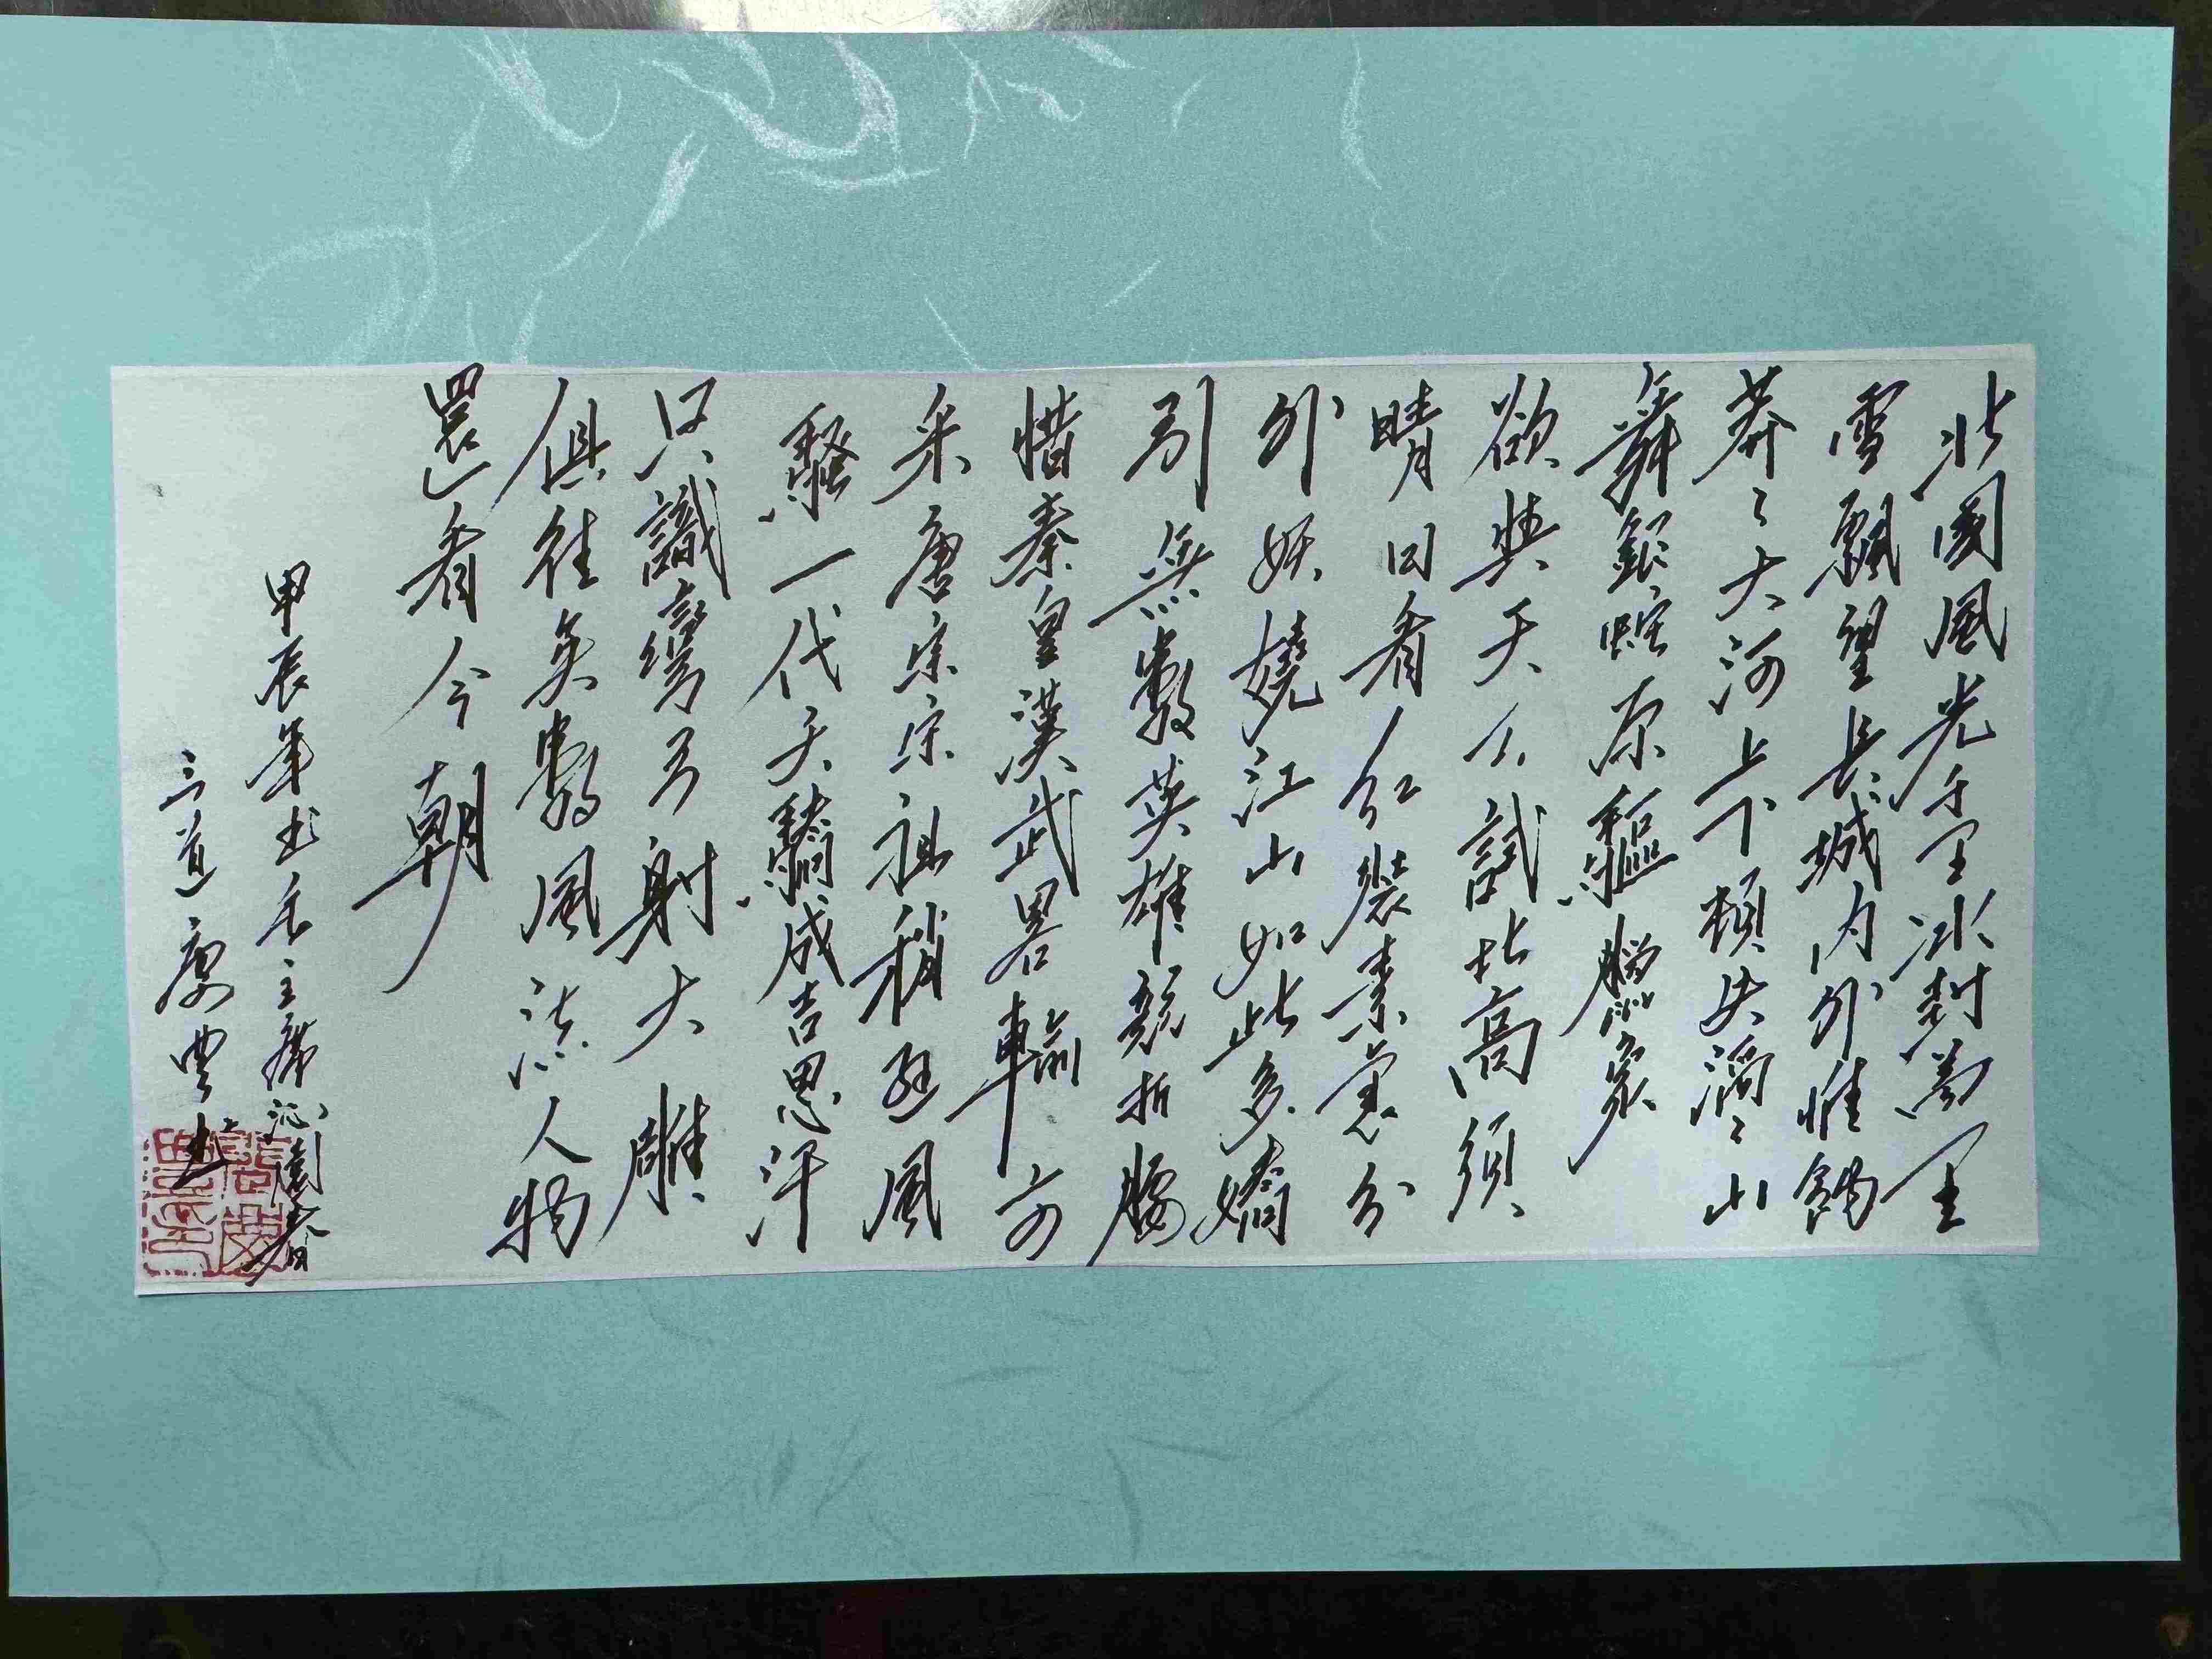 北國風光千里冰封萬里
雪飄望長城內外惟餘
莽々大河上下頓失滔々山
舞銀蛇原驅臘象
欲與天公試比高須
晴日看紅裝素裹分
外妖嬈江山如此多嬌
引無數英雄競折腰
惜秦皇漢武畧輸文
采唐宗宋祖稍遜風
騷一代天驕成吉思汗
只識彎弓射大雕
俱往矣數風流人物
還看今朝
甲辰年書毛主席沁園春
三道廖書